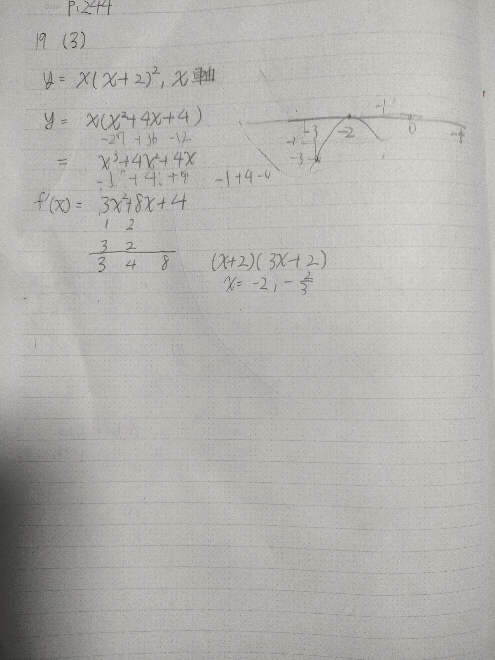 P.244
19 (3)
y = x(x+2)², x軸
y = x(x²+4x+4)
-27 +36 -12
= x³+4x²+4x
-1 +4 -4
f'(x) = 3x²+8x+4
1 2
3 2
3 4 8
(x+2)(3x+2)
x = -2, -2/3
-1
-3
-2
0
-3